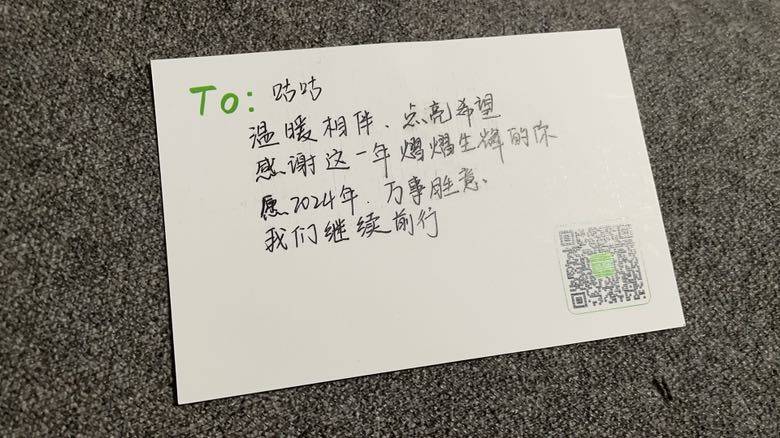 To: 咕咕
温暖相伴、点亮希望
感谢这一年熠熠生辉的你
愿2024年、万事胜意、
我们继续前行